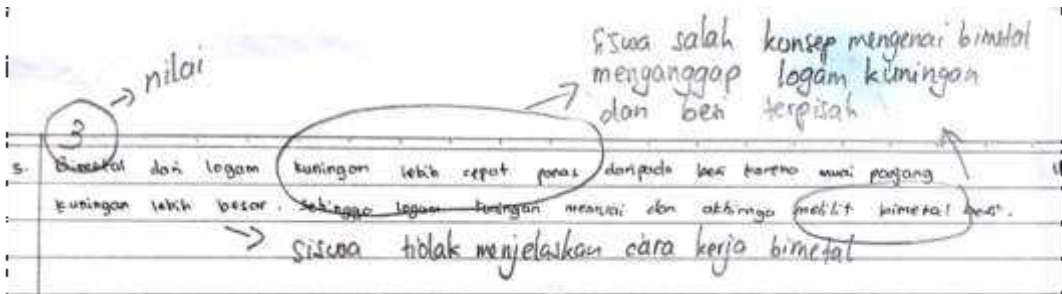 Siswa salah konsep mengenai bimetal
menganggap logam kuningan
dan besi terpisah
→ nilai
3
5. Bimetal dari logam kuningan lebih cepat panas daripada besi karena muai panjang
kuningan lebih besar. Sehingga logam kuningan memuai dan akhirnya melilit bimetal besi.
→ Siswa tidak menjelaskan cara kerja bimetal